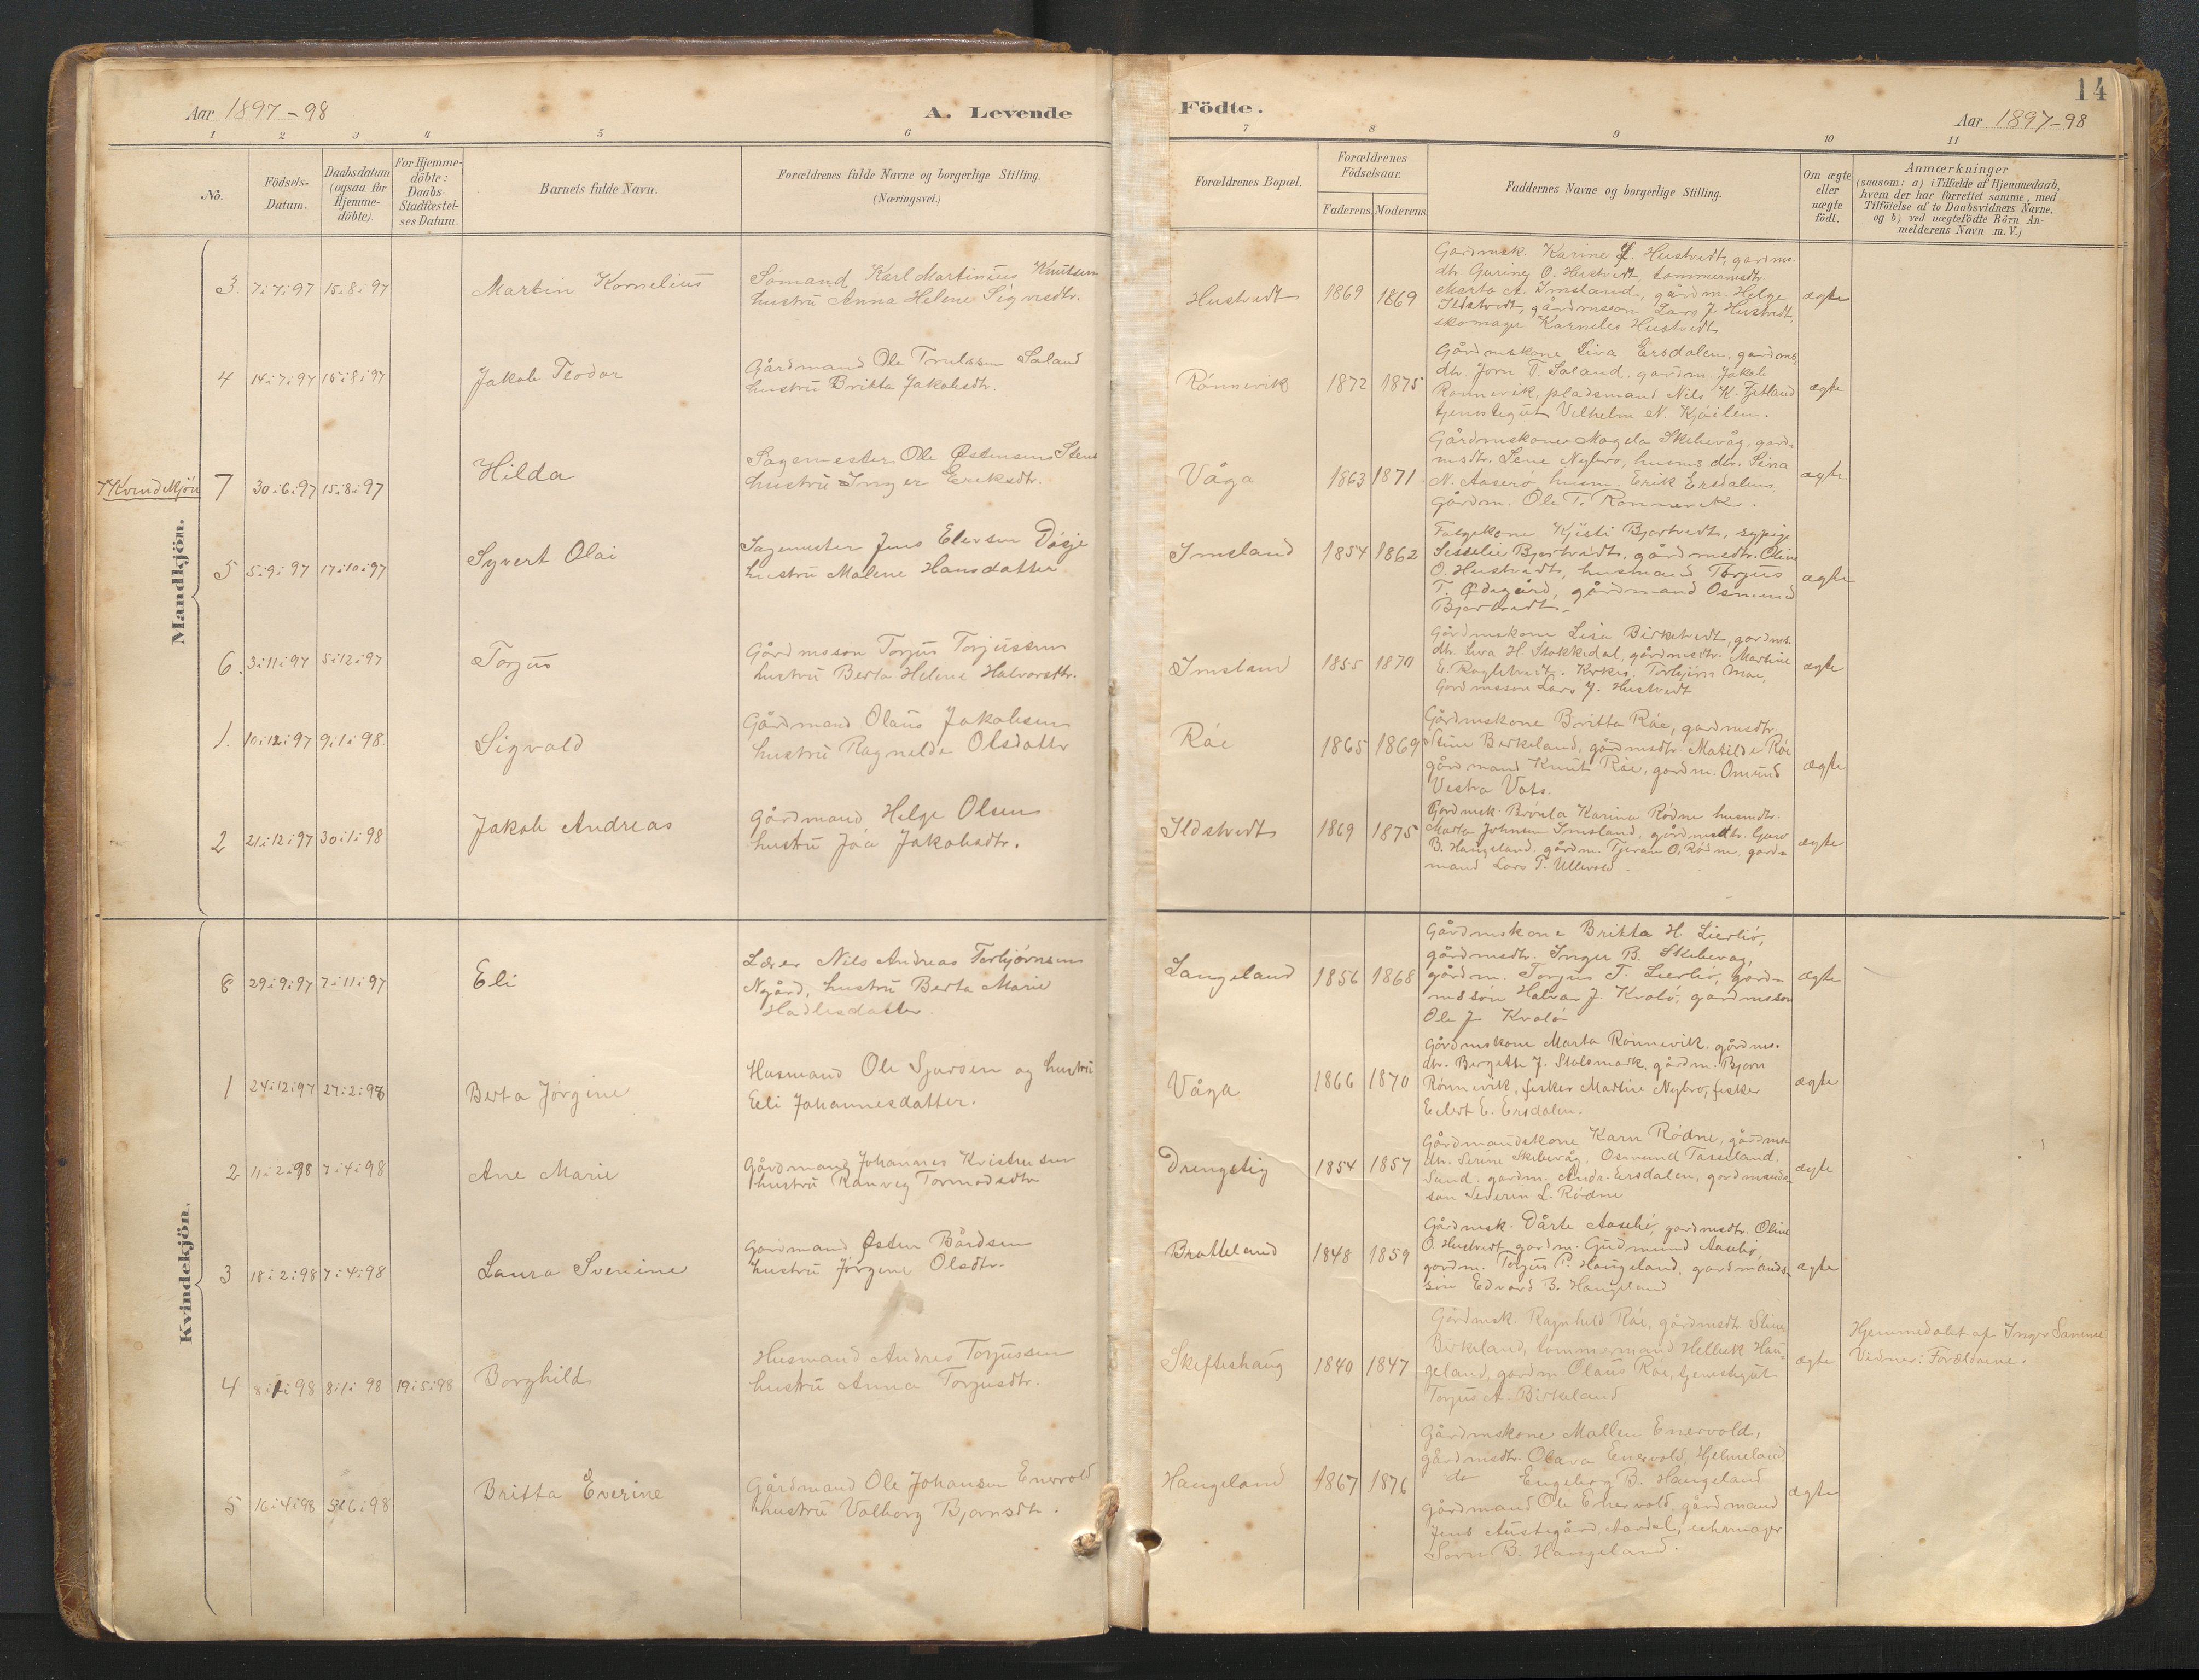 14
Aar 1897-98
A. Levende
Födte.
Aar 1897-98
1 2 3 4 5 6 7 8 9 10 11
No.
Födsels-
Datum.
Daabsdatum
(ogsaa for
Hjemme-
döbte).
For Hjemme-
döbte:
Daabs-
Stadfæstel-
ses Datum.
Barnets fulde Navn.
Forældrenes fulde Navne og borgerlige Stilling.
(Næringsvei.)
Forældrenes Bopæl.
Forældrenes
Födselsaar.
Faderens. Moderens.
Faddernes Navne og borgerlige Stilling.
Om ægte
eller
uægte
födt.
Anmærkninger
(saasom: a) i Tilfælde af Hjemmedaab,
hvem der har forrettet samme, med
Tilföielse af to Daabsvidners Navne,
og b) ved uægtefödte Börn An-
melderens Navn m. V.)
Mandkjön.
3. 7:7:97 15:8:97
Martin Kornelius
Sømand Karl Martinius Knutsen
hustru Anna Helene Sigvrsdtr.
Hustvedt 1869 1869
Gardmsk. Karine Hustvedt, gardms.
dtr. Guring O. Hustvedt, tømmermdtr.
Marta A. Imsland, gårdm. Helge
Ildstvedt, gårdmsson Lars J. Hustvedt,
skomager Karneles Hustvedt
ægte
4 14:7:97 15:8:97
Jakob Teodor
Gårdmand Ole Trulssen Saland
hustru Britta Jakobsdtr.
Rønnevik 1872 1875
Gårdmskone Liva Ersdalen, gardms.
dtr. Jorn T. Saland, gardm. Jakob
Rønnevik, pladsmand Nils K. Fjetland
tjenestegut Vilhelm N. Kjøilen.
ægte
1 Kvindekjön 7 30:6:97 15:8:97
Hilda
Sagemester Ole Østensens Stene
hustru Inger Eriksdtr.
Våga 1863 1871
Gårdmskone Magela Skibevåg, gard-
msdtr. Lene Nybrø, husms.dtr. Sina
N. Aaserø, husm. Erik Ersdalen,
gårdm. Ole T. Rønnevik.
ægte
5 5:9:97 17:10:97
Syvert Olai
Sagemester Jens Elevsen Døsje
hustru Malene Hansdatter
Imsland 1854 1862
Følgekone Kjisti Bjortvedt, sypige
Sesselie Bjortvedt, gårdmsdtr. Oline
O. Hustvedt, husmand Torjus
T. Ødegård, gårdmand Osmund
Bjortvedt.
ægte
6. 3:11:97 5:12:97
Torjus
Gårdmsson Torjus Torjussen
hustru Berta Helene Halvorsdtr.
Imsland 1855 1870
Gårdmskone Lisa Birketvedt, gardms.
dtr. Liva H. Stokkedal, gårdmsdtr. Martine
E. Roglstvedt, Kirkes. Torbjørn Moe,
Gardmsson Lars J. Hustvedt
ægte
1. 10:12:97 9:1:98.
Sigvald
Gårdmand Olaus Jakobsen
hustru Ragnelde Olsdattr
Røe 1865 1869
Gårdmskone Britta Røe, gardmsdtr.
Stine Berkeland, gårdmsdtr. Matilde Røe
gårdmand Knut Røe, gardm. Omund
Vestra Vats.
ægte
2 21:12:97 30:1:98
Jakob Andreas
Gårdmand Helge Olsen
hustru Jøa Jakobsdtr.
Ildstvedt 1869 1875
Gardmsk. Brøsla Karina Rødne husmdtr.
Marta Johnsen Imsland, gårdmsdtr. Guro
B. Haugeland, gårdm. Tjeran O. Rødne, gard-
mand Lars T. Ullevold.
ægte
Kvindekjön.
8 29:9:97 7:11:97
Eli
Lærer Nils Andreas Torbjørnsen
Nygård, hustru Berta Marie
Hadlesdatter.
Langeland 1856 1868
Gårdmskone Britta H. Lierliø,
gårdmsdtr. Inger B. Skibevag,
gårdm. Torjus T. Lierliø, gard-
msson Halvar J. Kvalø, gardmsson
Ole J. Kvalø
ægte
1 24:12:97 27:2:98
Berta Jørgine
Husmand Ole Sjursen og hustru
Eli Johannesdatter.
Våga 1866 1870
Gårdmskone Marta Rønnevik, gårdms.
dtr. Bergette J. Stolsmark, gårdm. Bjørn
Rønnevik, fisker Martine Nybrø, fisker
Edert E. Ersdalen.
ægte
2 11:2:98 7:4:98
Ane Marie
Gårdmand Johannes Kristensen
hustru Ranveg Tormodsdtr
Drengstig 1854 1857
Gårdmandskone Karn Rødne, gårdms
dtr. Serine Skibevåg, Osmund Tasseland.
Sand, gardm. Andr. Ersdalen, gardmands-
søn Severin L. Rødne
ægte
3 18:2:98 7:4:98
Laura Sverine
Gårdmand Østen Bårdsen
hustru Jørgine Olsdtr.
Bratteland 1848 1859
Gårdmsk. Dårte Aaseliø, gardmsdtr. Oline
O. Hustvedt, gardm. Gudmund Aaseliø,
gardm. Torjus P. Haugeland, gardmands-
søn Edvard B. Haugeland
ægte
4 8:1:98 8:1:98 19:5:98
Borghild
Husmand Andres Torjussen
hustru Anna Torjusdtr.
Skifteshaug 1840 1847
Gårdmsk. Ragnhild Røe, gårdmsdtr Stine
Birkeland, tømmermand Helliek Hau-
geland, gardm. Olaus Røe, tjenestegut
Torjus A. Birkeland
ægte
Hjemmedøbt af Inger Samme
Vidner: Forældrene.
5 16:4:98 5:6:98
Britta Everine
Gårdmand Ole Johansen Enervold
hustru Valborg Bjørnsdtr.
Haugeland 1867 1876
Gårdmskone Mallen Enervold,
gårdmsdtr. Olava Enervold, Hjelmeland,
do Engeborg B. Haugeland
gårdmand Ole Enervold, gårdmand
Jens Austigård, Aardal,
Søren B. Haugeland.
ægte